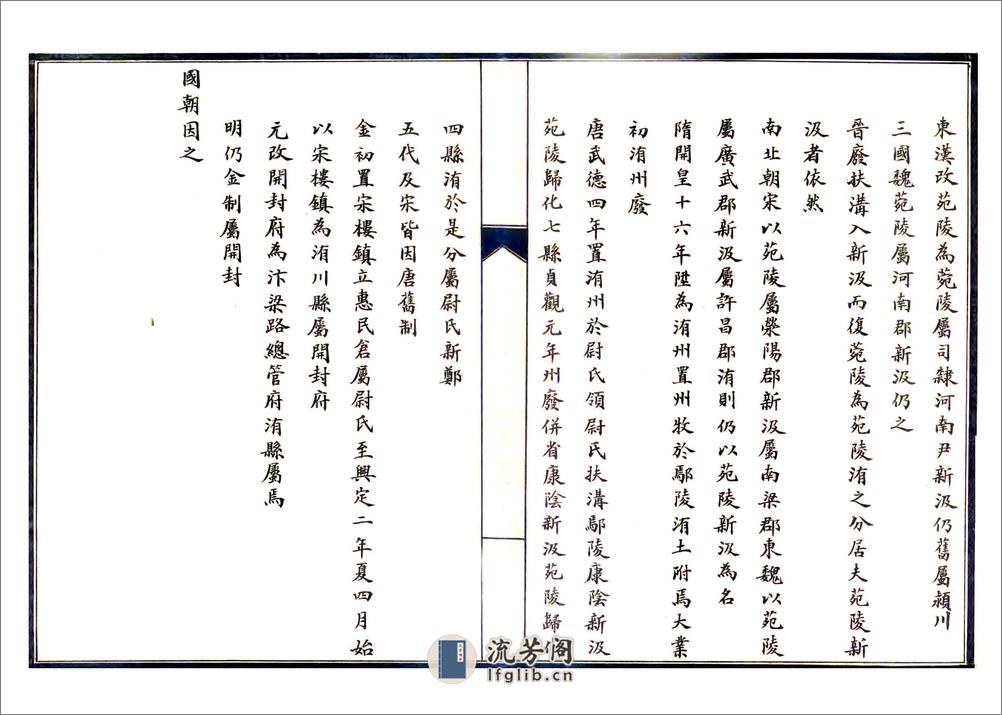 東漢改苑陵為菀陵屬司隸河南尹新汲仍舊屬潁川
三國魏菀陵屬河南郡新汲仍之
晉廢扶溝入新汲而復菀陵為苑陵洧之分居夫苑陵新
汲者依然
南北朝宋以苑陵屬滎陽郡新汲屬南梁郡東魏以苑陵
屬廣武郡新汲屬許昌郡洧則仍以苑陵新汲為名
隋開皇十六年陞為洧州置州牧於鄢陵洧土附焉大業
初洧州廢
唐武德四年置洧州於尉氏領尉氏扶溝鄢陵康陰新汲
苑陵歸化七縣貞觀元年州廢併省康陰新汲苑陵歸化
四縣洧於是分屬尉氏新鄭
五代及宋皆因唐舊制
金初置宋樓鎮立惠民倉屬尉氏至興定二年夏四月始
以宋樓鎮為洧川縣屬開封府
元改開封府為汴梁路總管府洧縣屬焉
明仍金制屬開封
國朝因之
流芳阁
lfglib.cn